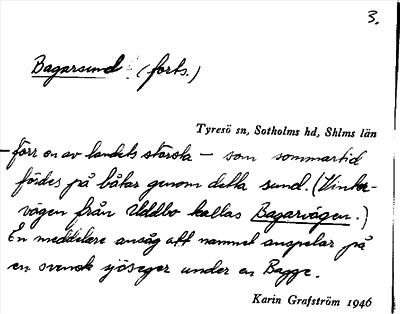 3.
Bagarsund (forts.)
Tyresö sn, Sotholms hd, Shlms län
– förr en av landets största – som sommartid
fördes på båtar genom detta sund. (Vinter-
vägen från Uddbo kallas Bagarvägen.)
En meddelare ansåg att namnet anspelar på
en svensk sjöseger under en Bagge.
Karin Grafström 1946